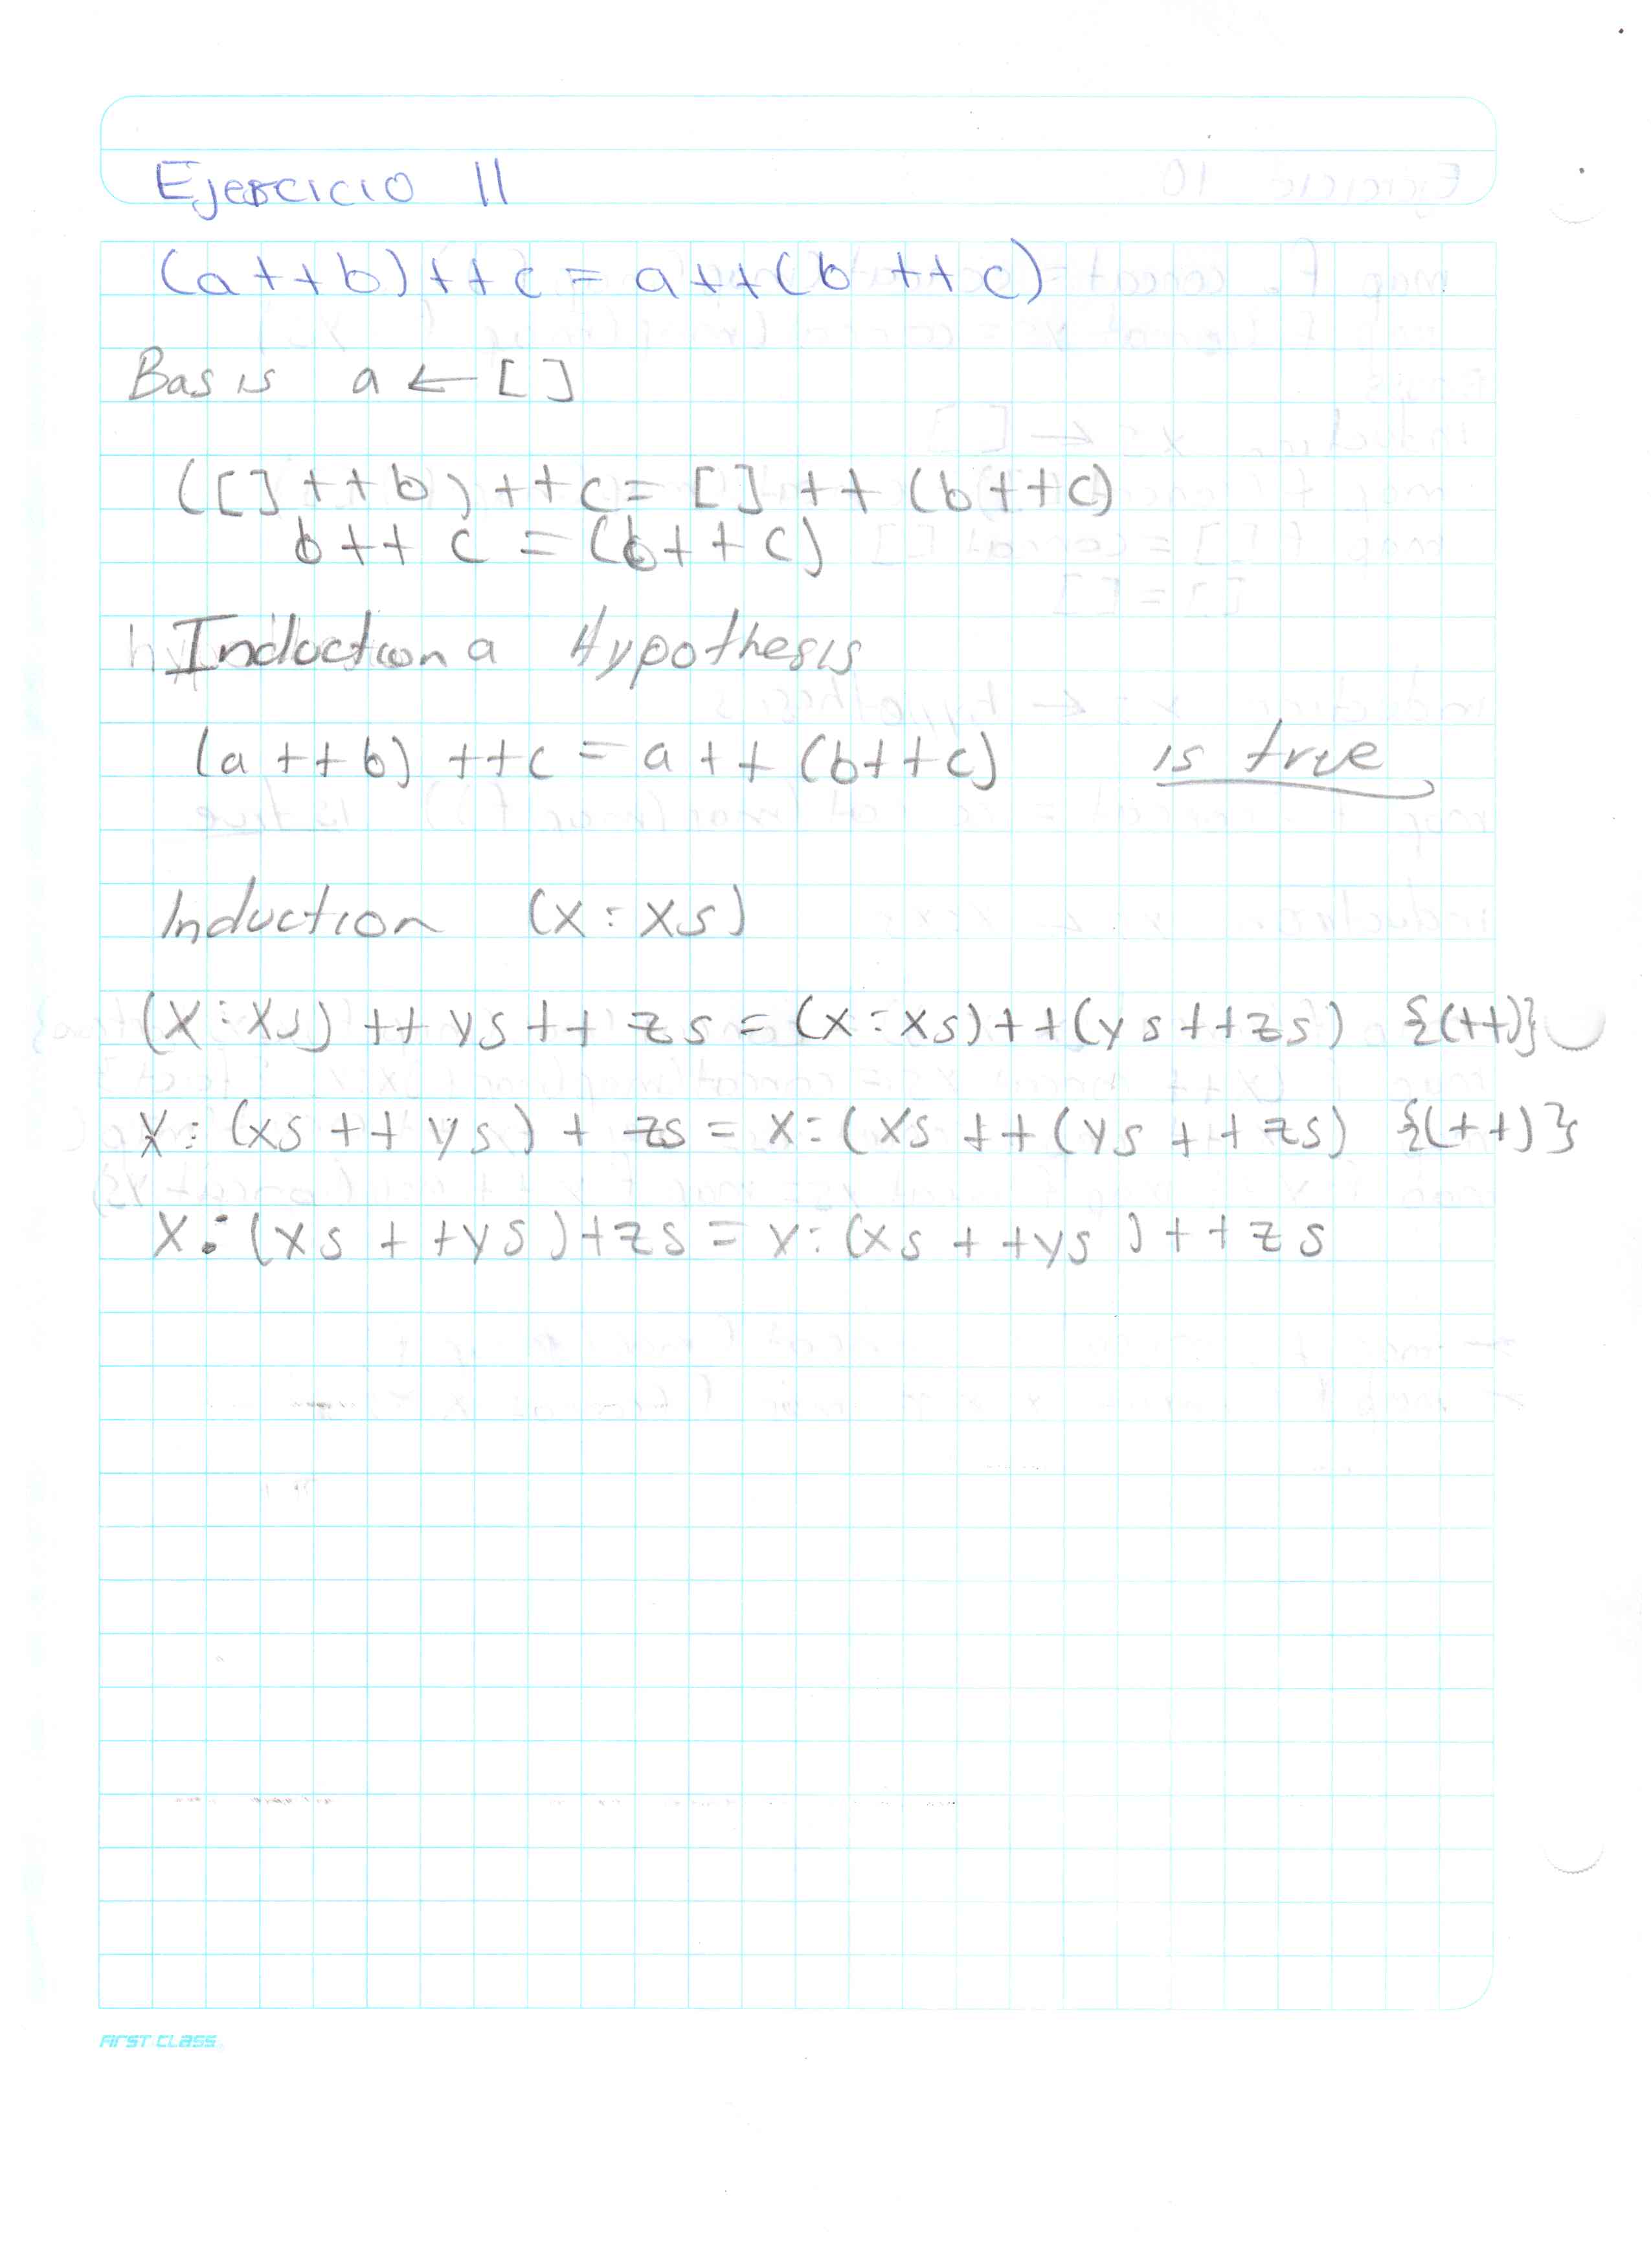 Ejercicio 11
(a++b)++c = a++(b ++c)
Basis a ← []
([]++b)++c = []++ (b++c)
b++ c = (b++c)
Induction a Hypothesis
(a ++b) ++c = a ++ (b++c) is true
Induction (x:xs)
(x:xs) ++ ys ++ zs = (x:xs)++(ys++zs) {(++)}
x: (xs ++ ys) + zs = x:(xs ++(ys ++zs) {(++)}
x:(xs ++ys)+zs = x:(xs ++ys)++zs
FIRST CLASS